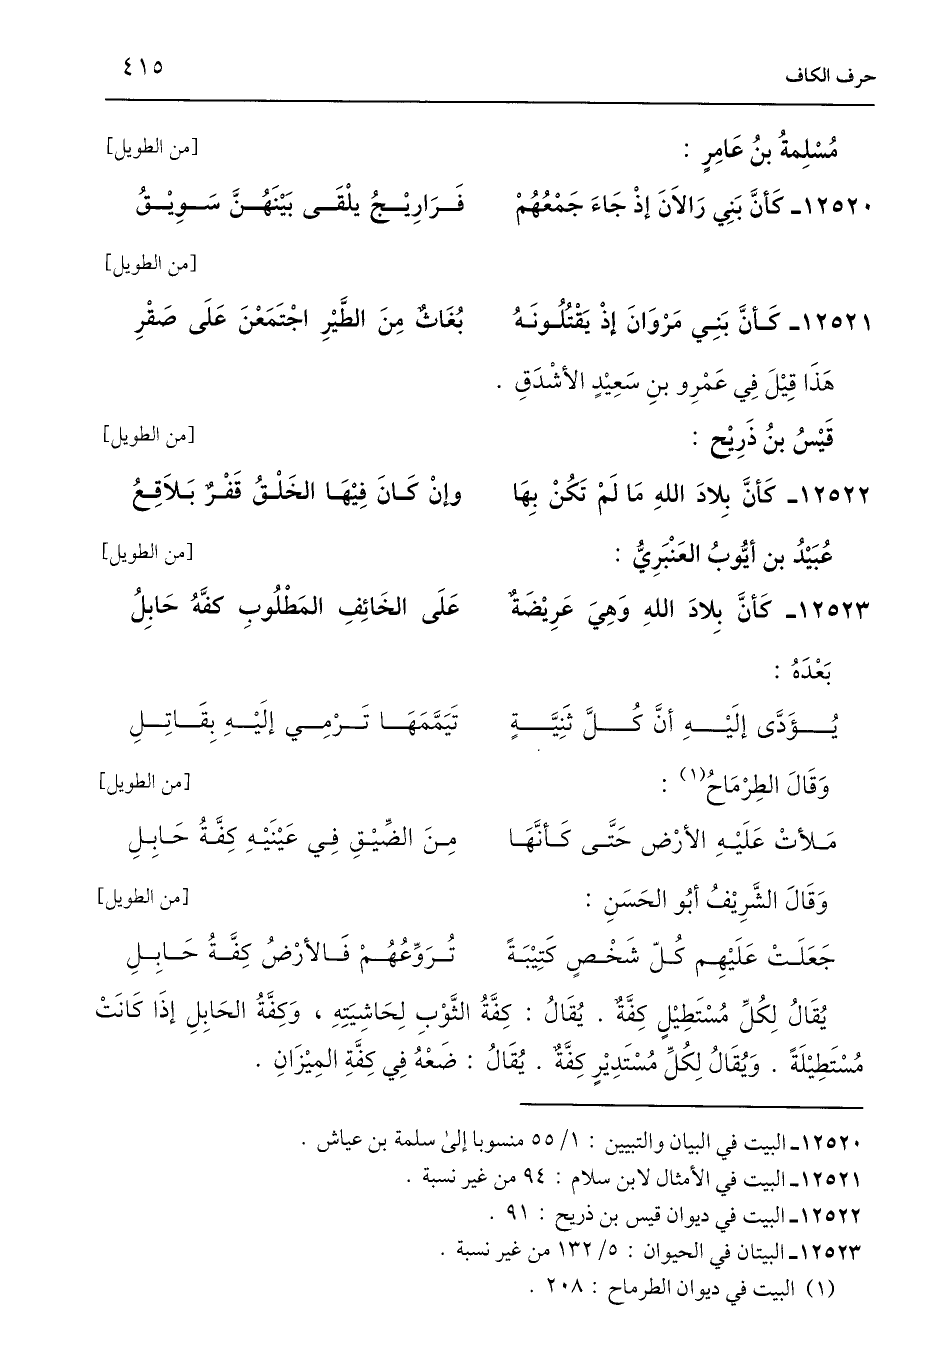 حرف الكاف ٤١٥
مُسْلِمةُ بنُ عَامِرٍ : [من الطويل]
١٢٥٢٠ـ كَأنَّ بَنِي رَالاَنَ إذْ جَاءَ جَمْعُهُمْ فَـرَارِيْـجُ يلْقَـى بَيْنَهُـنَّ سَـوِيْـقُ
[من الطويل]
١٢٥٢١ـ كَـأنَّ بَنِـي مَرْوَانَ إذْ يَقْتُلُـونَـهُ بُغَاثٌ مِنَ الطَّيْرِ اجْتَمَعْنَ عَلَى صَقْرِ
هَذَا قِيْلَ فِي عَمْرِو بنِ سَعِيْدٍ الأشْدَقِ .
قَيْسُ بنُ ذَرِيْح : [من الطويل]
١٢٥٢٢ـ كَأنَّ بِلادَ اللهِ مَا لَمْ تَكُنْ بِهَا وإنْ كَـانَ فِيْهَـا الخَلْـقُ قَفْـرٌ بَـلاَقِـعُ
عُبَيْدُ بن أيُّوبُ العَنْبَرِيُّ : [من الطويل]
١٢٥٢٣ـ كَأنَّ بِلادَ اللهِ وَهِيَ عَرِيْضَةٌ عَلَى الخَائِفِ المَطْلُوبِ كفَّهُ حَابِلُ
بَعْدَهُ :
يُـــؤَدَّى إلَيْـــهِ أنَّ كُـــلَّ ثَنِيَّـــةٍ تَيَمَّمَهَــا تَــرْمِــي إلَيْــهِ بِقَــاتِــلِ
وَقَالَ الطِرْمَاحُ(١) : [من الطويل]
مَـلأتْ عَلَيْـهِ الأرْضَ حَتَّـى كَـأنَّهَـا مِـنَ الضِّيْـقِ فِـي عَيْنَيْـهِ كِفَّـةُ حَـابِـلِ
وَقَالَ الشَّرِيْفُ أبُو الحَسَنِ : [من الطويل]
جَعَلَـتْ عَلَيْهِـم كُـلّ شَخْـصٍ كَتِيْبَـةً تُـرَوِّعُهُـمْ فَـالأرْضُ كِفَّـةُ حَـابِـلِ
يُقَالُ لِكُلِّ مُسْتَطِيْلٍ كِفَّةٌ . يُقَالُ : كِفَّةُ الثَّوْبِ لِحَاشِيَتِهِ ، وَكِفَّةُ الحَابِلِ إذَا كَانَتْ
مُسْتَطِيْلَةً . وَيُقَالُ لِكُلِّ مُسْتَدِيْرٍ كِفَّةٌ . يُقَالُ : ضَعْهُ فِي كِفَّةِ المِيْزَانِ .
١٢٥٢٠ـ البيت في البيان والتبيين : ١/ ٥٥ منسوبا إلىٰ سلمة بن عياش .
١٢٥٢١ـ البيت في الأمثال لابن سلام : ٩٤ من غير نسبة .
١٢٥٢٢ـ البيت في ديوان قيس بن ذريح : ٩١ .
١٢٥٢٣ـ البيتان في الحيوان : ٥/ ١٣٢ من غير نسبة .
(١) البيت في ديوان الطرماح : ٢٠٨ .